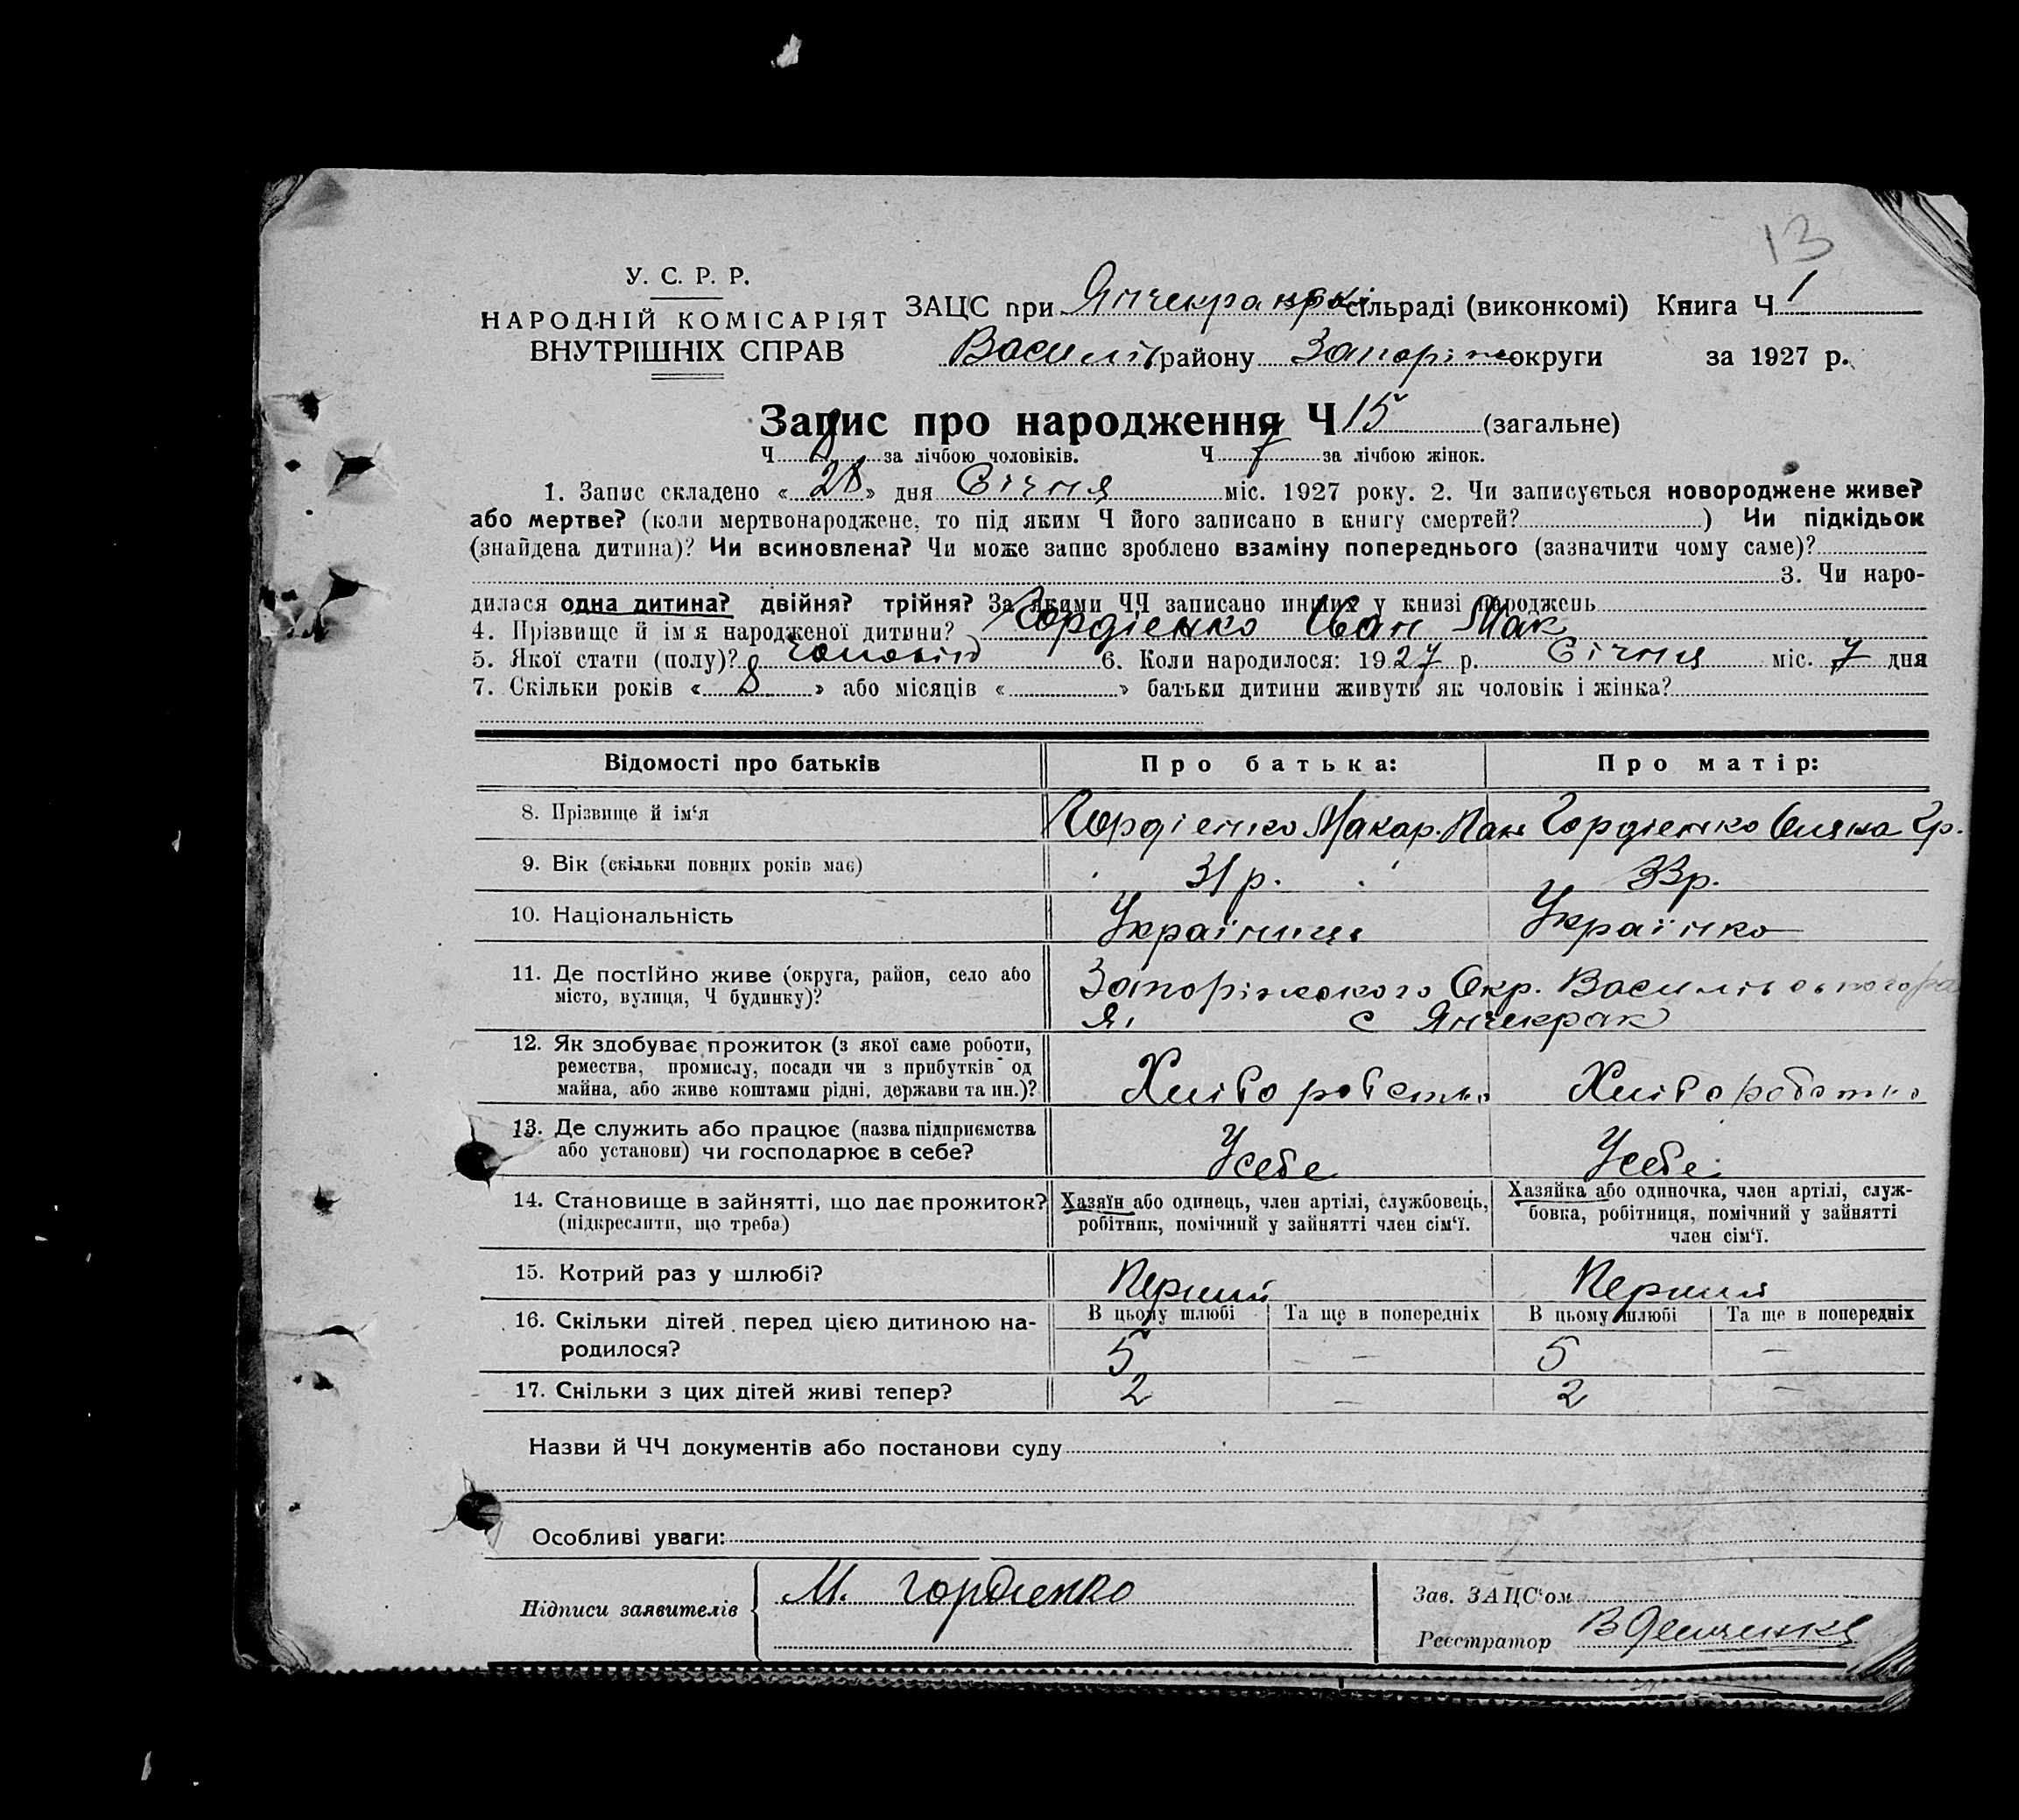 13
У. С. Р. Р.
НАРОДНІЙ КОМІСАРІЯТ
ВНУТРІШНІХ СПРАВ
ЗАЦС при Янчекракській сільраді (виконкомі) Книга Ч 1
Василів району Запоріж округи за 1927 р.
Запис про народження Ч 15 (загальне)
Ч 8 за лічбою чоловіків. Ч 7 за лічбою жінок.
1. Запис складено « 28 » дня Січня міс. 1927 року. 2. Чи записується новороджене живе?
або мертве? (коли мертвонароджене, то під яким Ч його записано в книгу смертей? ) Чи підкідьок
(знайдена дитина)? Чи всиновлена? Чи може запис зроблено взаміну попереднього (зазначити чому саме)?
3. Чи наро-
дилася одна дитина? двійня? трійня? За якими ЧЧ записано инших у книзі народжень
4. Прізвище й ім'я народженої дитини? Гордієнко Іван Мак
5. Якої стати (полу)? чоловіч 6. Коли народилося: 1927 р. Січня міс. 7 дня
7. Скільки років « 8 » або місяців « » батьки дитини живуть як чоловік і жінка?
Відомості про батьків Про батька: Про матір:
8. Прізвище й ім'я Гордіенко Макар. Пан Гордіенко Оляна Гр.
9. Вік (скільки повних років має) 31 р. 33 р.
10. Національність Українець Українко
11. Де постійно живе (округа, район, село або
місто, вулиця, Ч будинку)? Запоріжского Окр. Василівського ра
с Янчекрак
12. Як здобуває прожиток (з якої саме роботи,
ремества, промислу, посади чи з прибутків од
майна, або живе коштами рідні, держави та ин.)? Хліборобство Хлібороботно
13. Де служить або працює (назва підприємства
або установи) чи господарює в себе? У себе У себе
14. Становище в зайнятті, що дає прожиток?
(підкреслити, що треба)
Хазяїн або одинець, член артілі, службовець,
робітник, помічний у зайнятті член сім'ї.
Хазяйка або одиночка, член артілі, служ-
бовка, робітниця, помічний у зайнятті
член сім'ї.
15. Котрий раз у шлюбі? Перший Перший
16. Скільки дітей перед цією дитиною на-
родилося?
В цьому шлюбі Та ще в попередніх В цьому шлюбі Та ще в попередніх
5 — 5 —
17. Скільки з цих дітей живі тепер? 2 — 2 —
Назви й ЧЧ документів або постанови суду
Особливі уваги:
Підписи заявителів М. Гордіенко
Зав. ЗАЦС'ом
Реєстратор В Демченко